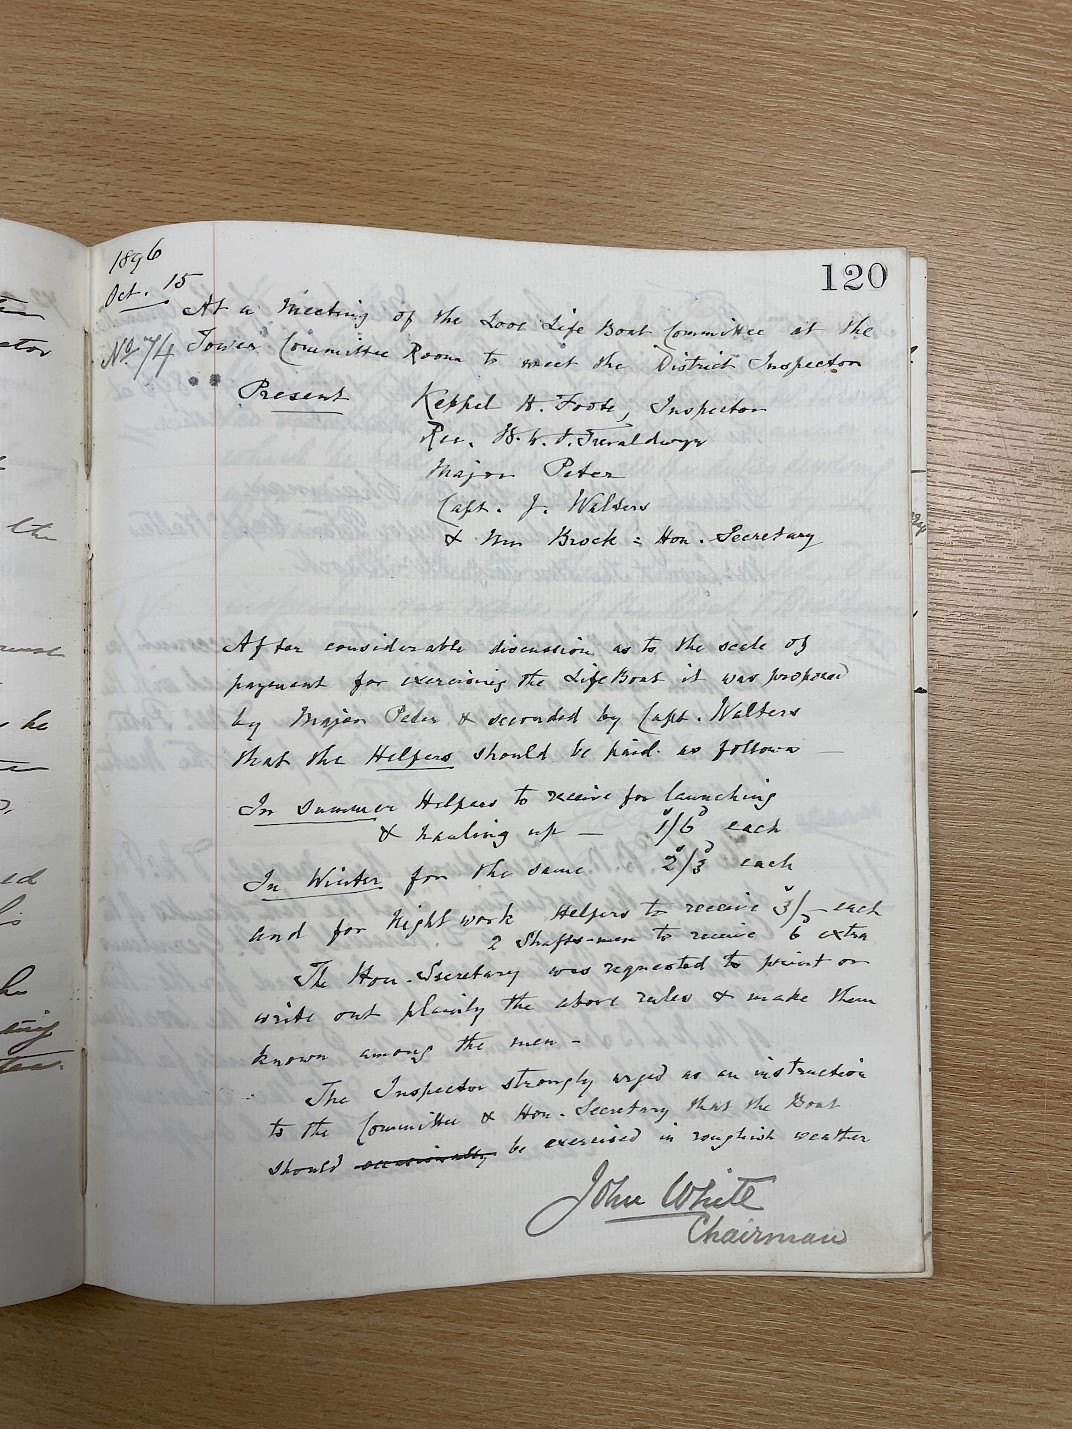 120
1896
Oct. 15
No. 74
At a Meeting of the Looe Life Boat Committee at the
Tower Committee Room to meet the District Inspector
Present Keppel H. Foote, Inspector
Rev. H. W. J. Trevaldwyn
Major Peter
Capt. J. Walters
& Wm Brock = Hon. Secretary
After considerable discussion as to the scale of
payment for exercising the LifeBoat it was proposed
by Major Peter & seconded by Capt. Walters
that the Helpers should be paid as follows —
In Summer Helpers to receive for launching
& hauling up — 1/6 each
In Winter for the same . 2/3 each
and for Night work Helpers to receive 3/- each
2 Shafts-men to receive 6 extra
The Hon. Secretary was requested to print or
write out plainly the above rules & make them
known among the men -
The Inspector strongly urged as an instruction
to the Committee & Hon. Secretary that the Boat
should occasionally be exercised in roughish weather
John White
Chairman
the
he
ed